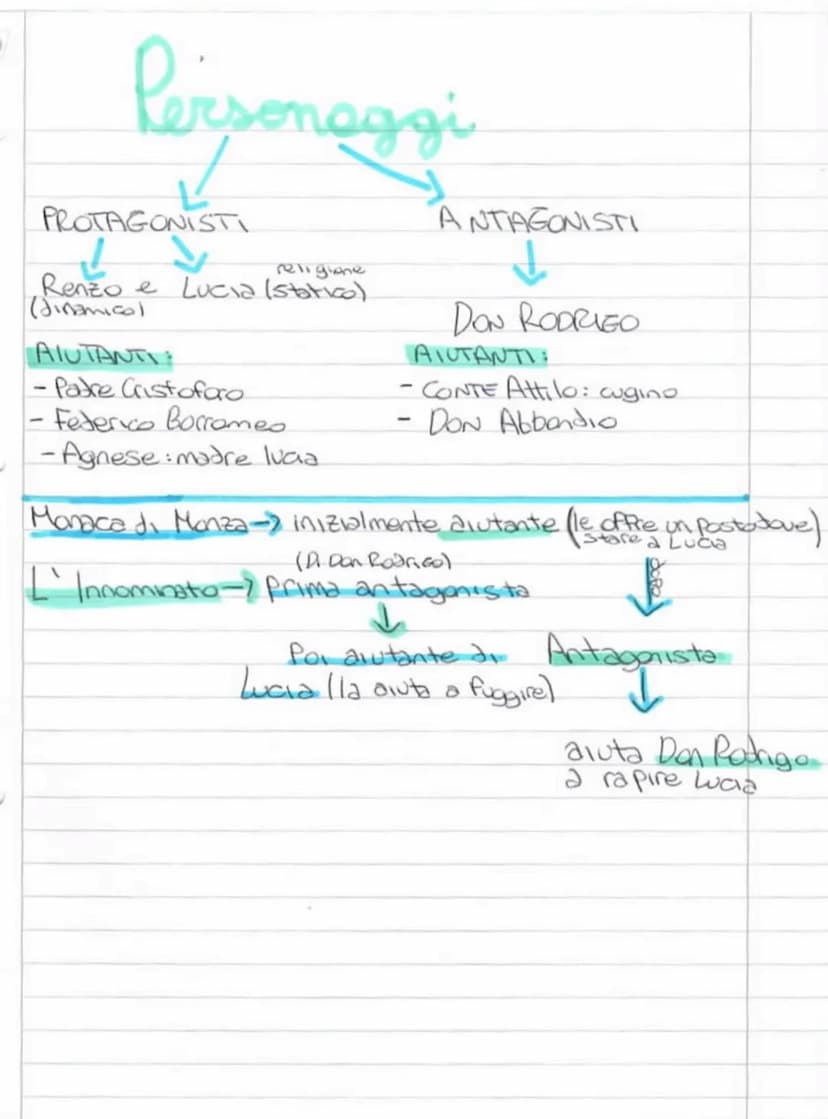 Personaggi
PROTAGONISTI
ANTAGONISTI
religione
Renzo e Lucia (statico)
(dinamico)
DON RODRIGO
AIUTANTI:
- Padre Cristoforo
- Federico Borromeo
- Agnese: madre lucia
AIUTANTI:
- CONTE Attilo: cugino
- DON Abbondio
Monaca di Monza → inizialmente aiutante (le offre un posto dove)
stare a Lucia
(Di Don Rodrigo)
L'Innominato → prima antagonista
Poi aiutante di
Lucia (la aiuta a fuggire)
poi
Antagonista
aiuta Don Rodrigo
a rapire Lucia